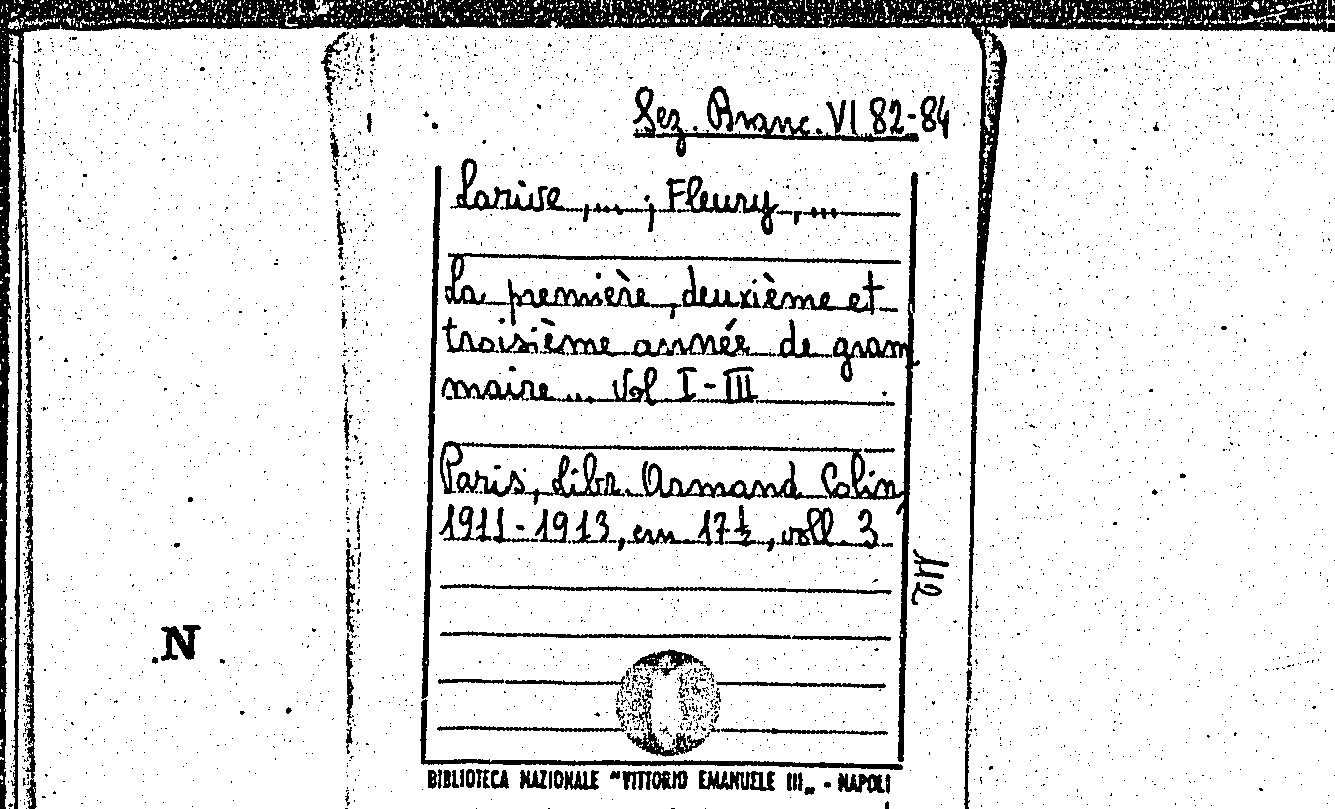 Sez. Branc. VI 82-84
Larive ,... ; Fleury , ...
La première, deuxième et
troisième année de gram
maire ... Vol I-III
Paris, Libr. Armand Colin,
1911-1913, cm 17½, voll. 3
N
BIBLIOTECA NAZIONALE "VITTORIO EMANUELE III„ - NAPOLI